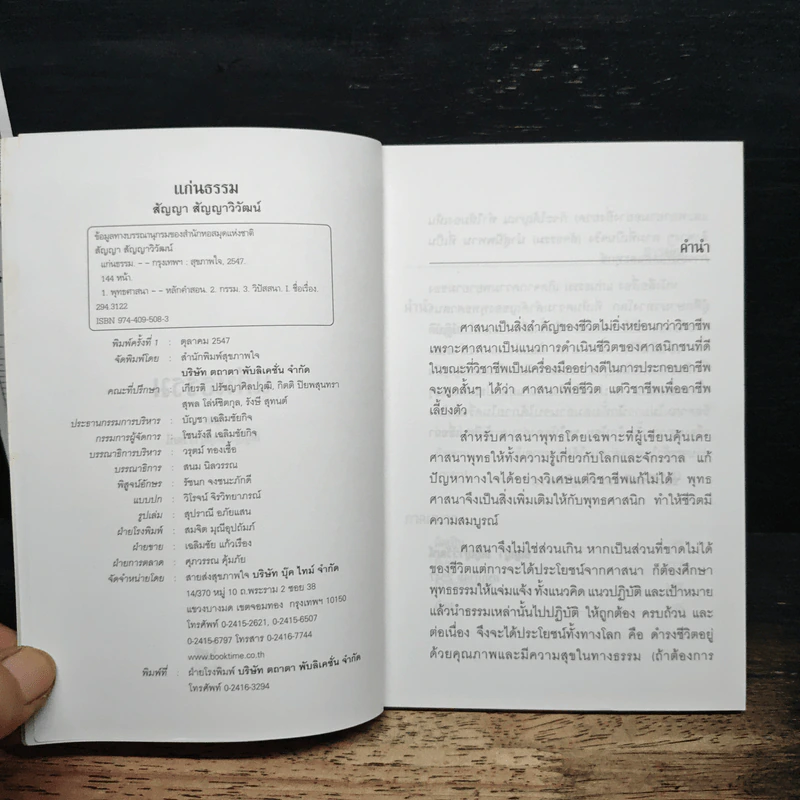 แก่นธรรม
สัญญา สัญญาวิวัฒน์
ข้อมูลทางบรรณานุกรมของสำนักหอสมุดแห่งชาติ
สัญญา สัญญาวิวัฒน์
แก่นธรรม. -- กรุงเทพฯ : สุขภาพใจ, 2547.
144 หน้า.
1. พุทธศาสนา -- หลักคำสอน. 2. กรรม. 3. วิปัสสนา. I. ชื่อเรื่อง.
294.3122
ISBN 974-409-508-3
พิมพ์ครั้งที่ 1 : ตุลาคม 2547
จัดพิมพ์โดย : สำนักพิมพ์สุขภาพใจ
บริษัท ตถาตา พับลิเคชั่น จำกัด
คณะที่ปรึกษา : เกียรติ ปรัชญาศิลปวุฒิ, กิตติ ปิยพสุนทรา
สุพล โล่ห์ชิตกุล, รังษี สุทนต์
ประธานกรรมการบริหาร : บัญชา เฉลิมชัยกิจ
กรรมการผู้จัดการ : โชนรังสี เฉลิมชัยกิจ
บรรณาธิการบริหาร : วรุตม์ ทองเชื้อ
บรรณาธิการ : สนม นิลวรรณ
พิสูจน์อักษร : รัชนก จงชนะภักดี
แบบปก : วิโรจน์ จิรวิทยาภรณ์
รูปเล่ม : สุปราณี อภัยแสน
ฝ่ายโรงพิมพ์ : สมจิต มุณีอุปถัมภ์
ฝ่ายขาย : เฉลิมชัย แก้วเรือง
ฝ่ายการตลาด : ศุภวรรณ คุ้มภัย
จัดจำหน่ายโดย : สายส่งสุขภาพใจ บริษัท บุ๊ค ไทม์ จำกัด
14/370 หมู่ 10 ถ.พระราม 2 ซอย 38
แขวงบางมด เขตจอมทอง กรุงเทพฯ 10150
โทรศัพท์ 0-2415-2621, 0-2415-6507
0-2415-6797 โทรสาร 0-2416-7744
www.booktime.co.th
พิมพ์ที่ : ฝ่ายโรงพิมพ์ บริษัท ตถาตา พับลิเคชั่น จำกัด
โทรศัพท์ 0-2416-3294
คำนำ
ศาสนาเป็นสิ่งสำคัญของชีวิตไม่ยิ่งหย่อนกว่าวิชาชีพ
เพราะศาสนาเป็นแนวการดำเนินชีวิตของศาสนิกชนที่ดี
ในขณะที่วิชาชีพเป็นเครื่องมืออย่างดีในการประกอบอาชีพ
จะพูดสั้นๆ ได้ว่า ศาสนาเพื่อชีวิต แต่วิชาชีพเพื่ออาชีพ
เลี้ยงตัว
สำหรับศาสนาพุทธโดยเฉพาะที่ผู้เขียนคุ้นเคย
ศาสนาพุทธให้ทั้งความรู้เกี่ยวกับโลกและจักรวาล แก้
ปัญหาทางใจได้อย่างวิเศษแต่วิชาชีพแก้ไม่ได้ พุทธ
ศาสนาจึงเป็นสิ่งเพิ่มเติมให้กับพุทธศาสนิก ทำให้ชีวิตมี
ความสมบูรณ์
ศาสนาจึงไม่ใช่ส่วนเกิน หากเป็นส่วนที่ขาดไม่ได้
ของชีวิตแต่การจะได้ประโยชน์จากศาสนา ก็ต้องศึกษา
พุทธธรรมให้แจ่มแจ้ง ทั้งแนวคิด แนวปฏิบัติ และเป้าหมาย
แล้วนำธรรมเหล่านั้นไปปฏิบัติ ให้ถูกต้อง ครบถ้วน และ
ต่อเนื่อง จึงจะได้ประโยชน์ทั้งทางโลก คือ ดำรงชีวิตอยู่
ด้วยคุณภาพและมีความสุขในทางธรรม (ถ้าต้องการ